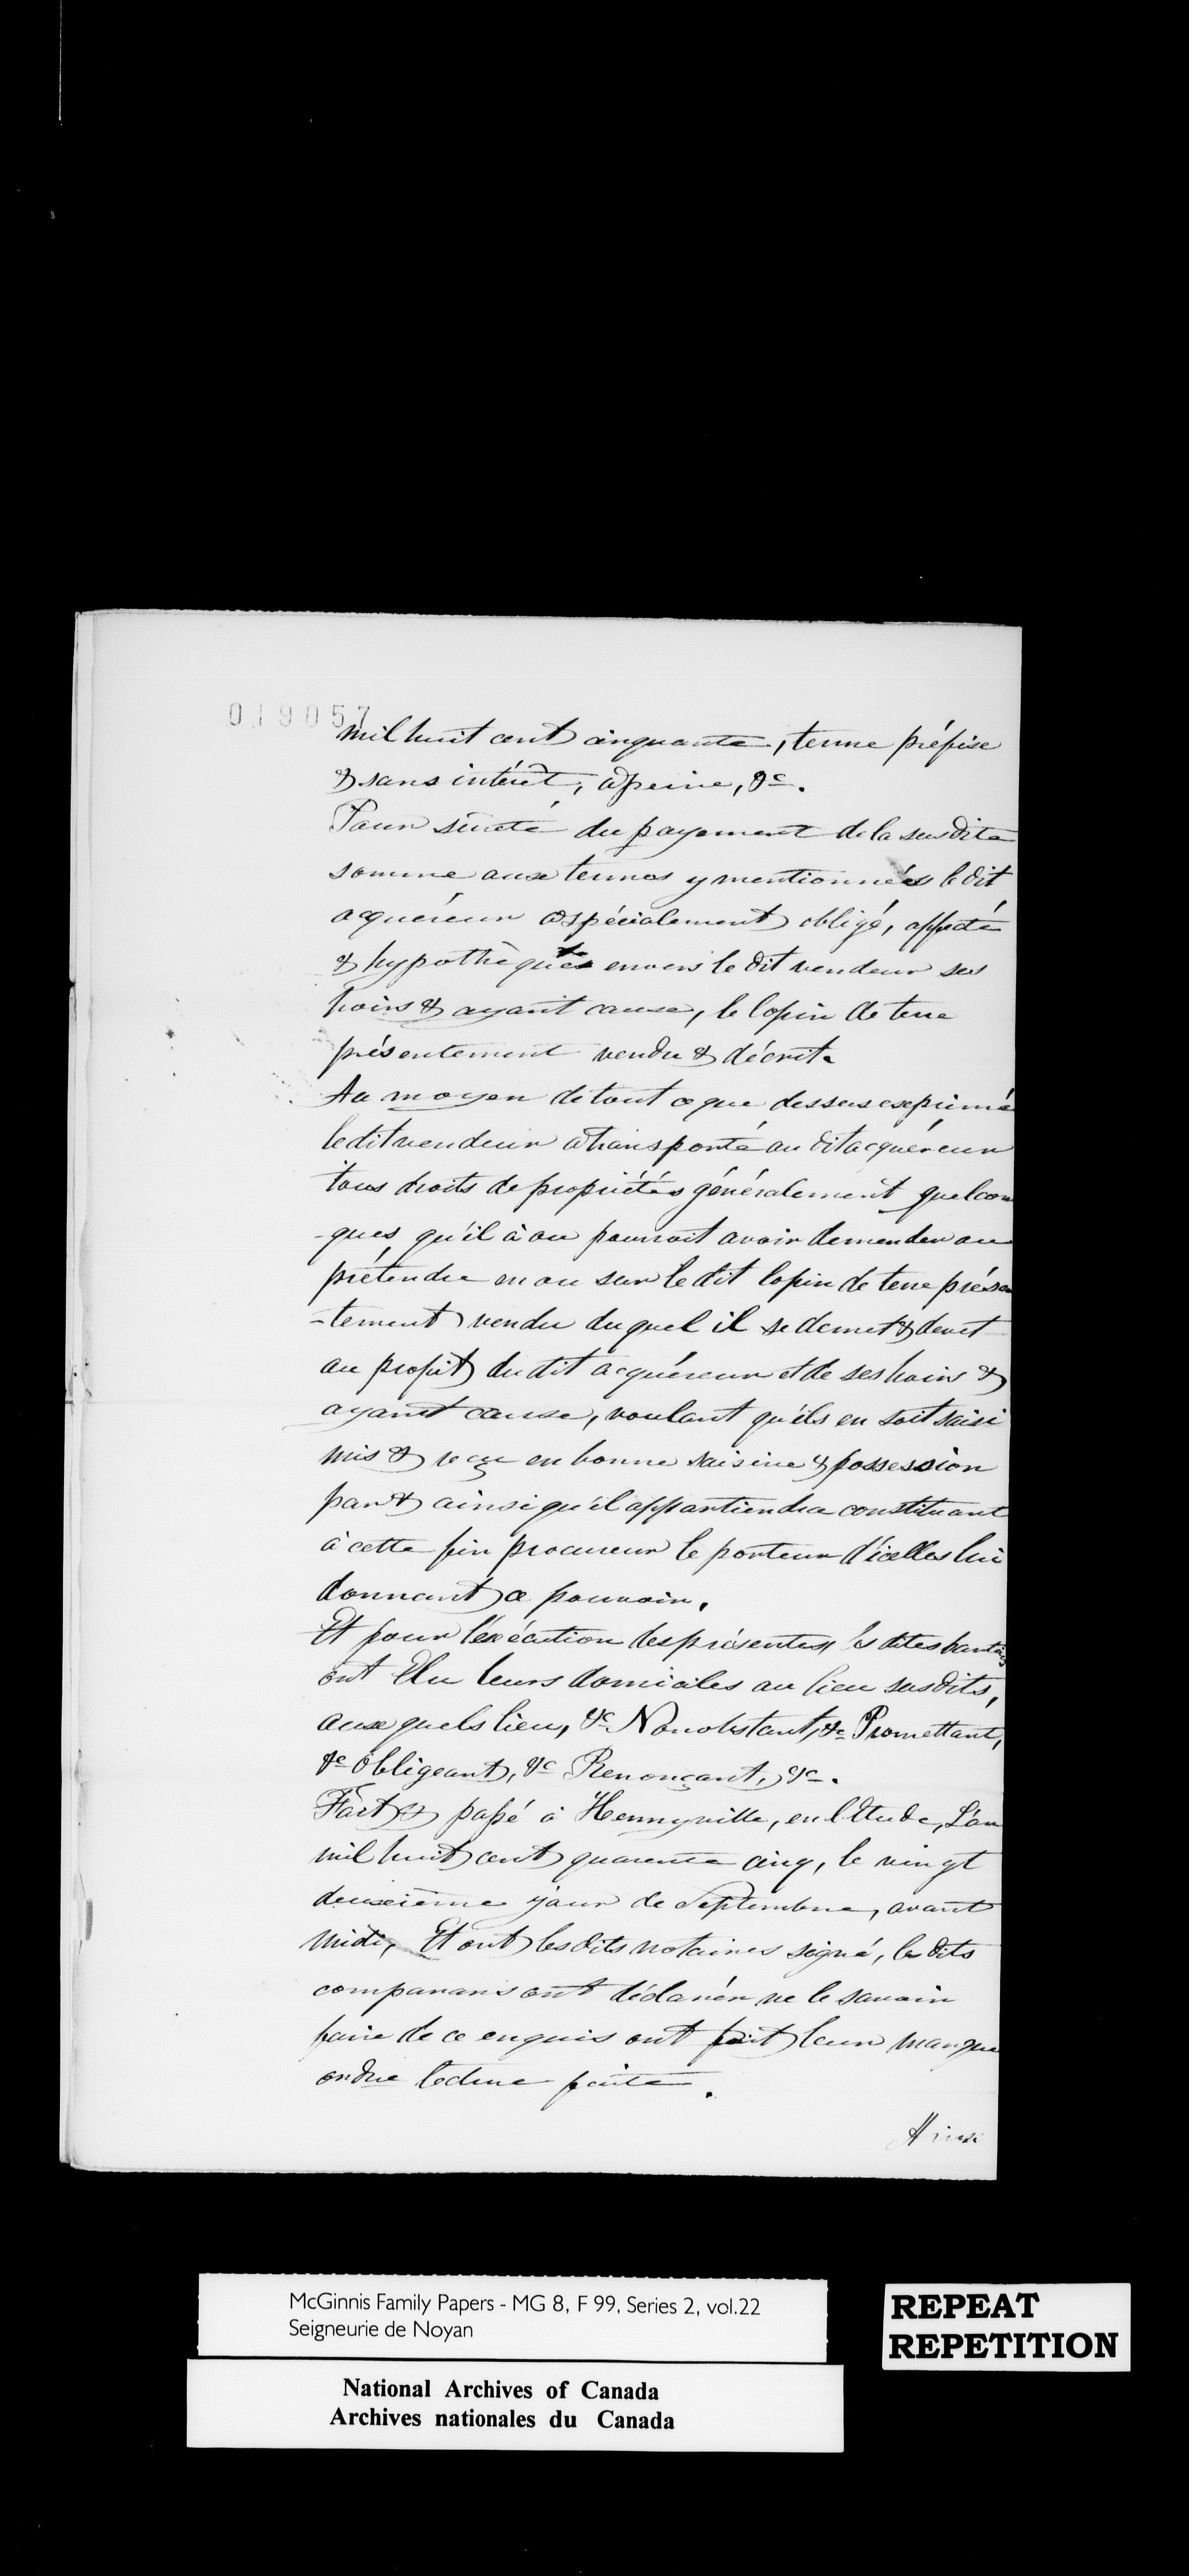 019057
mil huit cent cinquante, terme préfixe
& sans intérêt, à peine, &c.
Pour sûreté du payement de la susdite
somme aux termes y mentionnées le dit
acquéreur a spécialement obligé, affecté
& hypothèqués envers le dit vendeur ses
hoirs & ayant cause, le lopin de terre
présentement vendu & décrit.
Au moyen de tout ce que dessus exprimé
le dit vendeur a transporté au dit acquéreur
tous droits de propriétés généralement quelcon
-ques, qu'il à ou pourroit avoir demander ou
prétendre en ou sur le dit lopin de terre présen
-tement vendu duquel il se demet & devet
au profit du dit acquéreur et de ses hoirs &
ayant cause, voulant qu'ils en soit saisi
mis & reçu en bonne saisine & possession
par & ainsi qu'il appartiendra constituant
à cette fin procureur le porteur d'icelles lui
donnant ce pouvoir.
Et pour l'éxécution des présentes, les dites parties
ont Elu leurs domiciles au lieu susdits,
aux quels lieu, &c Nonobstant, &c Promettant,
&c Obligeant, &c Renonçant, &c.
Fait & passé à Henryville, en l'Etude, L'an
mil huit cent quarente cinq, le vingt
deuxième jour de Septembre, avant
midi, Et ont les dits notaires signé, les dits
comparans ont déclarér ne le savoir
faire de ce enquis ont fait leur marque
ordre lecture faite.
Ainsi
McGinnis Family Papers - MG 8, F 99, Series 2, vol.22
Seigneurie de Noyan
REPEAT
REPETITION
National Archives of Canada
Archives nationales du Canada